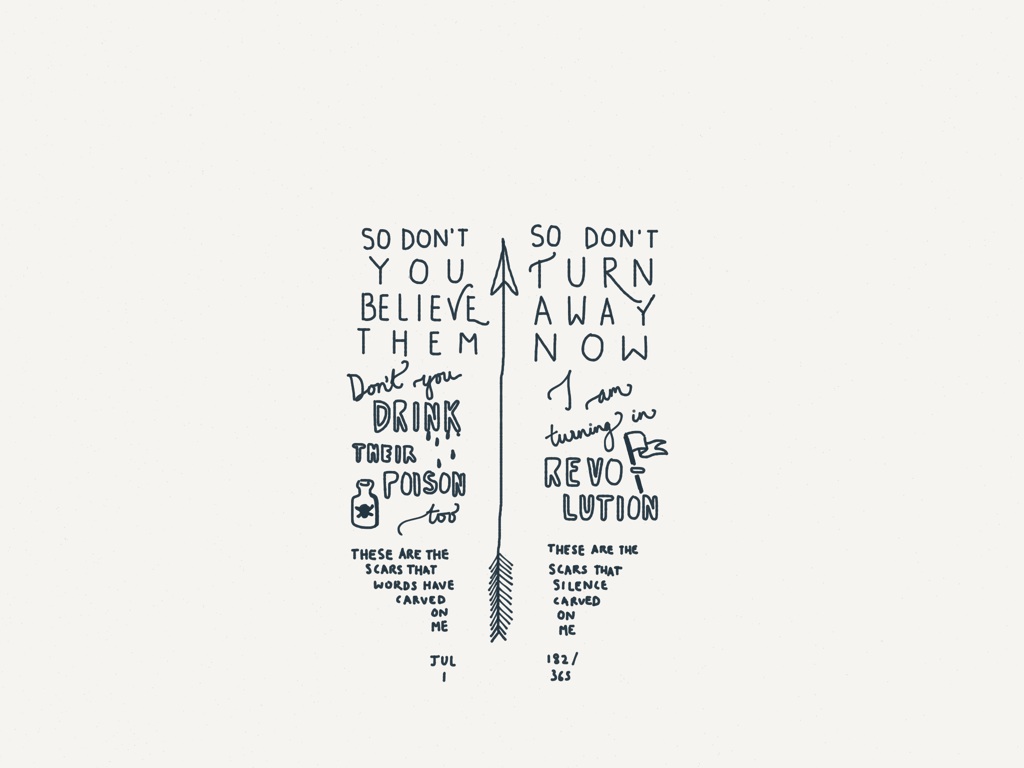 SO DON'T
YOU
BELIEVE
THEM
Don't you
DRINK
THEIR
POISON
too
THESE ARE THE
SCARS THAT
WORDS HAVE
CARVED
ON
ME
JUL
1
SO DON'T
TURN
AWAY
NOW
I am
turning in
REVO
LUTION
THESE ARE THE
SCARS THAT
SILENCE
CARVED
ON
ME
182/
365